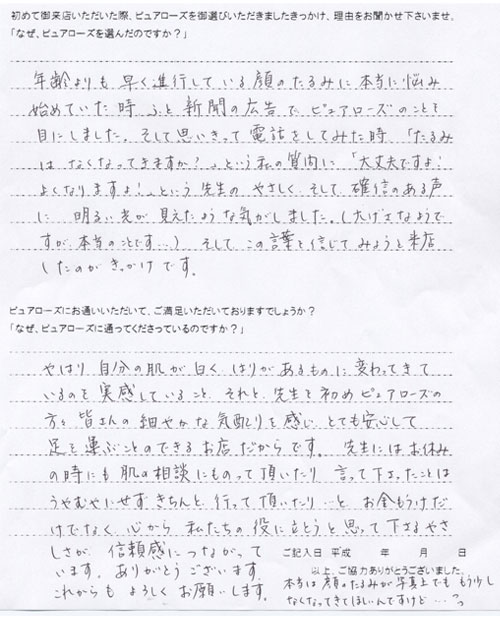 初めて御来店いただいた際、ピュアローズを御選びいただきましたきっかけ、理由をお聞かせ下さいませ。
「なぜ、ピュアローズを選んだのですか？」
年齢よりも早く進行している顔のたるみに本当に悩み
始めていた時 ふと新聞の広告で ピュアローズのことを
目にしました。そして思いきって電話をしてみた時 「たるみ
はなくなってきますか？」という私の質問に「大丈夫ですよ！
よくなりますよ！」という先生の やさしく そして 確信のある声
に 明るい光が見えたような気がしました。(大げさなようで
すが、本当のことです…) そして この言葉を信じてみようと来店
したのがきっかけです。
ピュアローズにお通いいただいて、ご満足いただいておりますでしょうか？
「なぜ、ピュアローズに通ってくださっているのですか？」
やはり 自分の肌が白く はりがあるものに変わってきて
いるのを 実感していること、それと、先生を初めピュアローズの
方々 皆さんの細やかな気配りを感じ、とても安心して
足を運ぶことのできるお店だからです。 先生にはお休み
の時にも肌の相談にものって頂いたり 言って下さったことは
うやむやにせずきちんと 行って頂いたり…と お金もうけだ
けでなく 心から 私たちの 役に立とうと思って下さるやさ
しさが 信頼感につながって
います。ありがとうございます。
これからも よろしく お願いします。
ご記入日 平成 年 月 日
以上、ご協力ありがとうございました。
本当は顔のたるみが写真上でも もう少し
なくなってきてほしいんですけど…